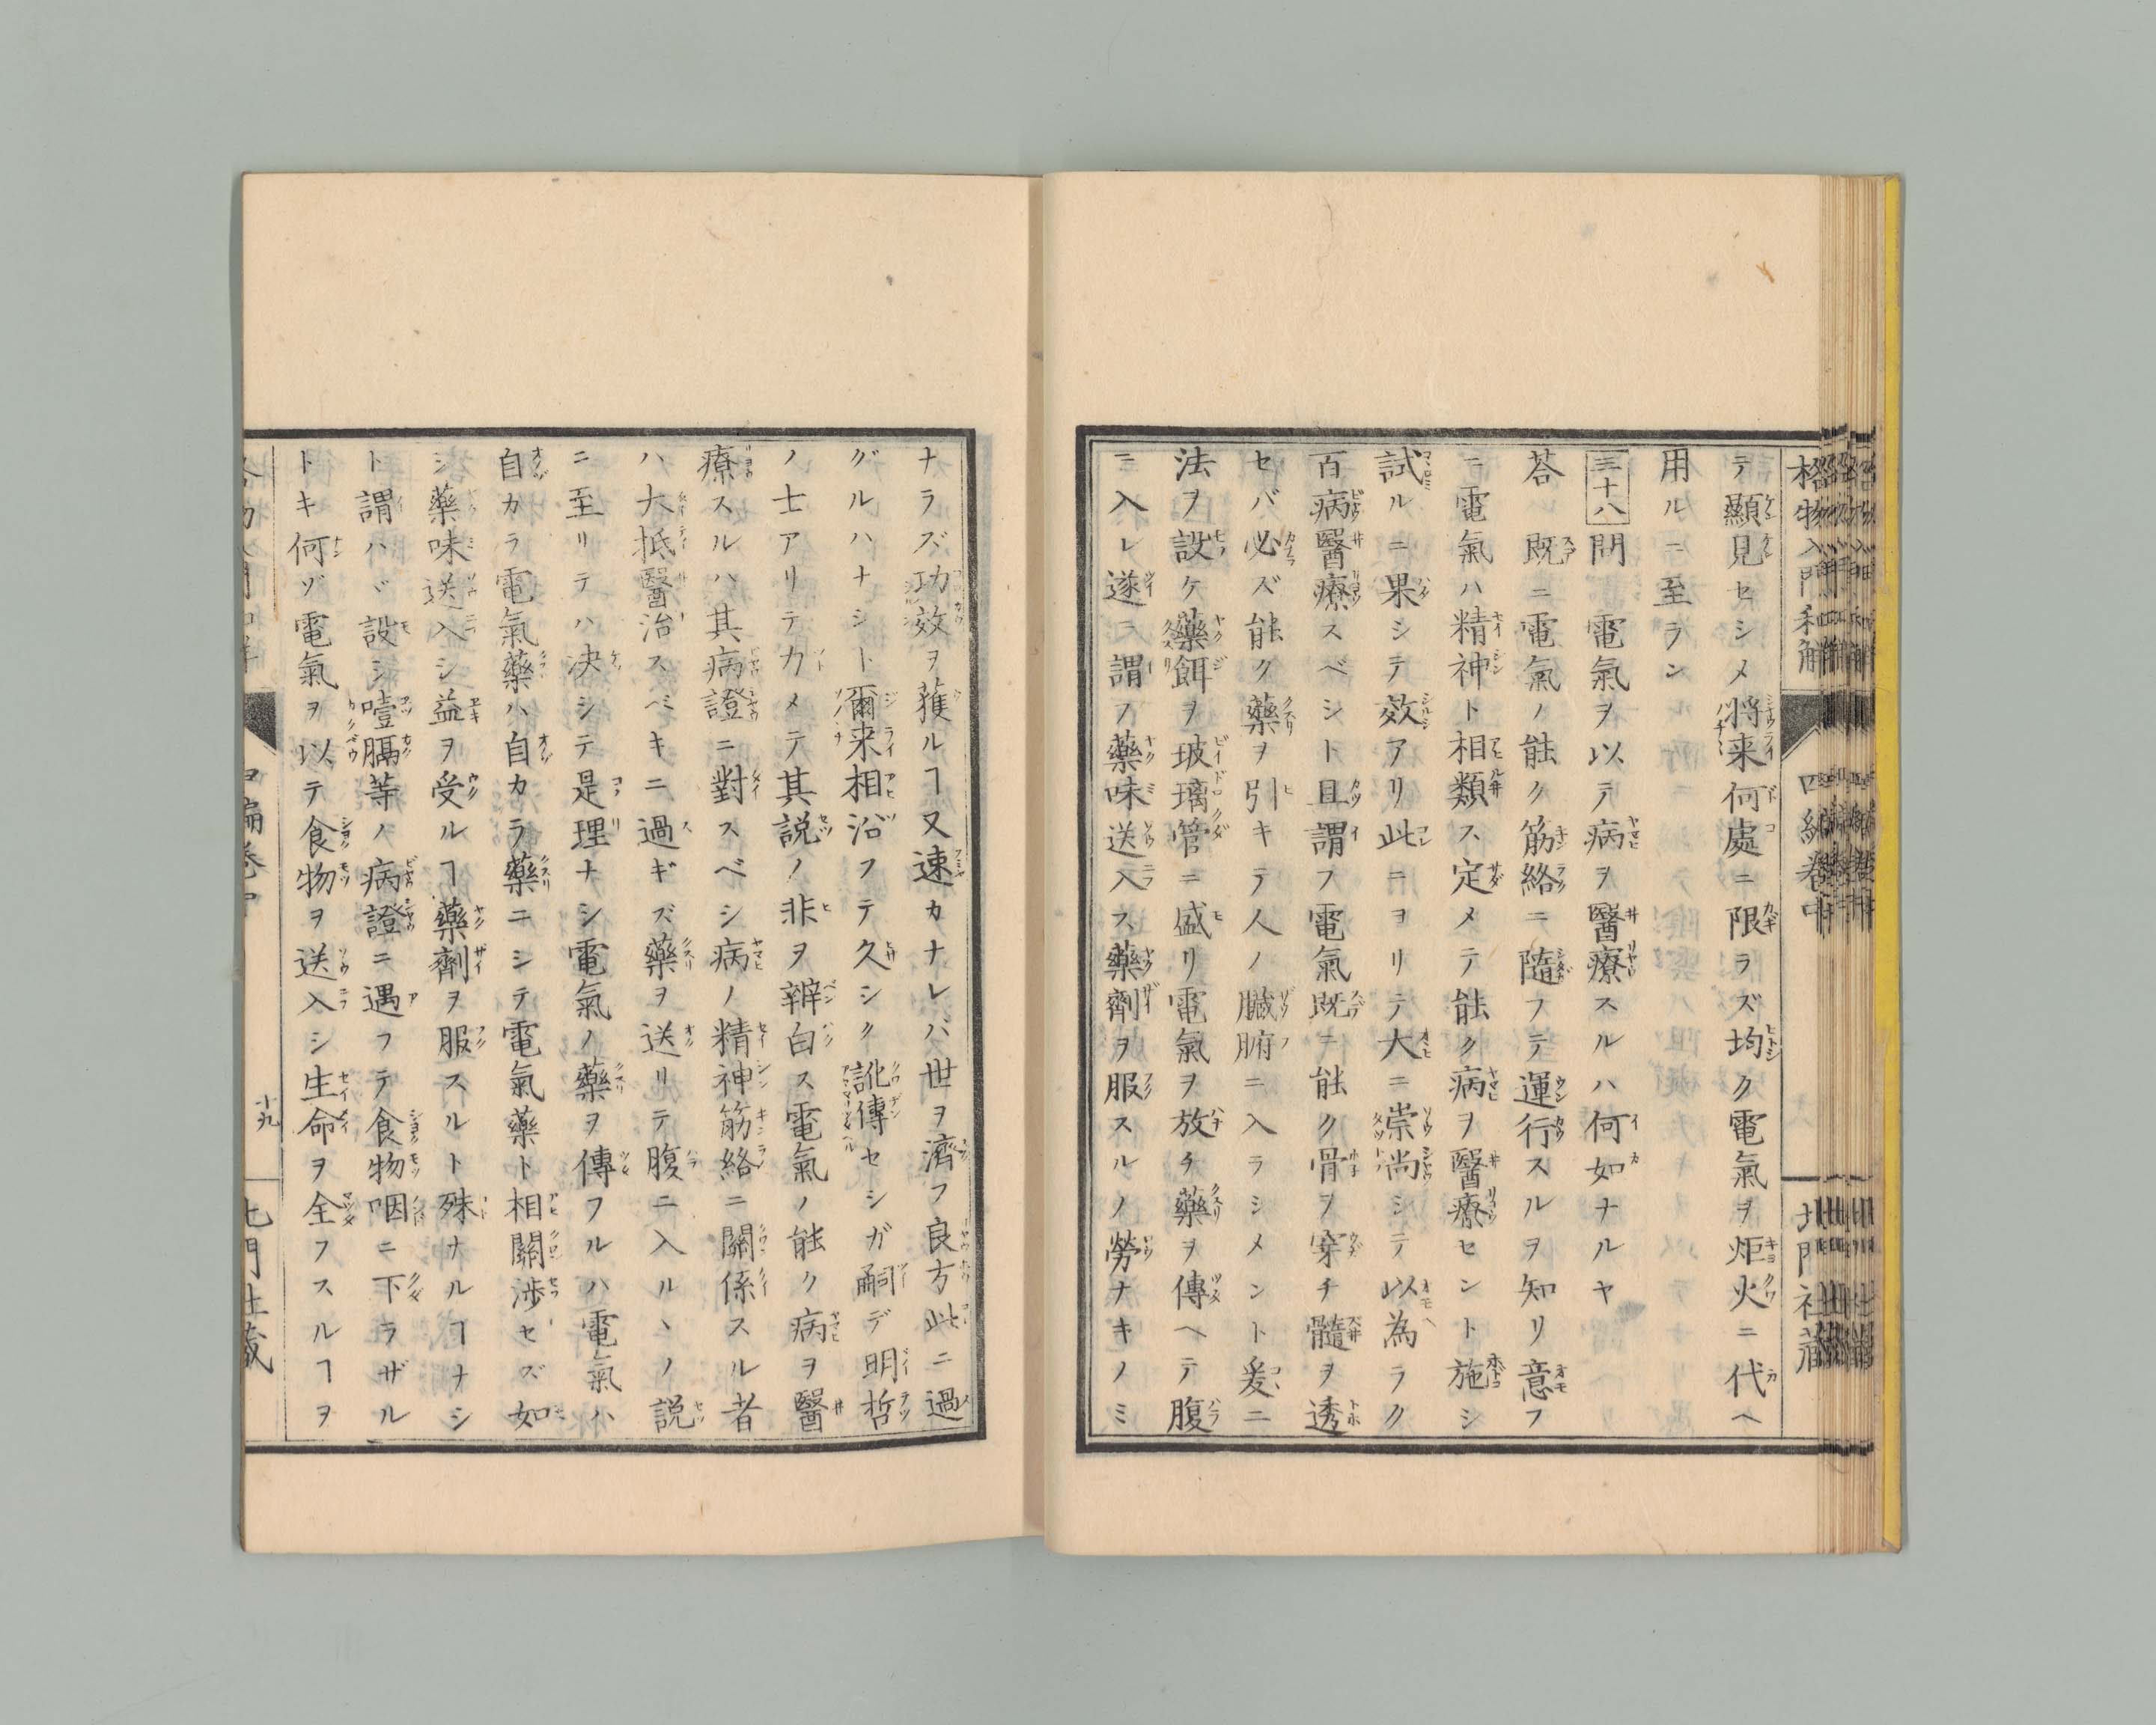 格物入門和解 四編卷中 北門社藏
テ顯見セシメ將来何處ニ限ラズ均ク電氣ヲ炬火ニ代ヘ
用ルニ至ラン
三十八 問 電氣ヲ以テ病ヲ醫療スルハ何如ナルヤ
荅 既ニ電氣ノ能ク筋絡ニ隨フテ運行スルヲ知リ意フ
ニ電氣ハ精神ト相類ス定メテ能ク病ヲ醫療セント施シ
試ルニ果シテ效アリ此ニヨリテ大ニ崇尚シテ以為ラク
百病醫療スベシト且謂フ電氣既ニ能ク骨ヲ穿チ髓ヲ透
セバ必ズ能ク藥ヲ引キテ人ノ臟腑ニ入ラシメント爰ニ
法ヲ設ケ藥餌ヲ玻璃管ニ盛リ電氣ヲ放チ藥ヲ傳ヘテ腹
ニ入レ遂ニ謂フ藥味送入ス藥劑ヲ服スルノ勞ナキノミ
ナラズ功效ヲ獲ルヿ又速カナレバ世ヲ濟フ良方此ニ過
グルハナシト爾来相沿フテ久シク訛傳セシガ嗣デ明哲
ノ士アリテ力メテ其説ノ非ヲ辨白ス電氣ノ能ク病ヲ醫
療スルハ其病證ニ對スベシ病ノ精神筋絡ニ關係スル者
ハ大抵醫治スベキニ過ギズ藥ヲ送リテ腹ニ入ルヽノ説
ニ至リテハ决シテ是理ナシ電氣ノ藥ヲ傳フルハ電氣ハ
自カラ電氣藥ハ自カラ藥ニシテ電氣藥ト相關涉セズ如
シ藥味送入シ益ヲ受ルヿ藥劑ヲ服スルト殊ナルヿナシ
ト謂ハヾ設シ噎膈等ノ病證ニ遇フテ食物咽ニ下ラザル
トキ何ゾ電氣ヲ以テ食物ヲ送入シ生命ヲ全フスルヿヲ
四編卷中 十九 北門社藏